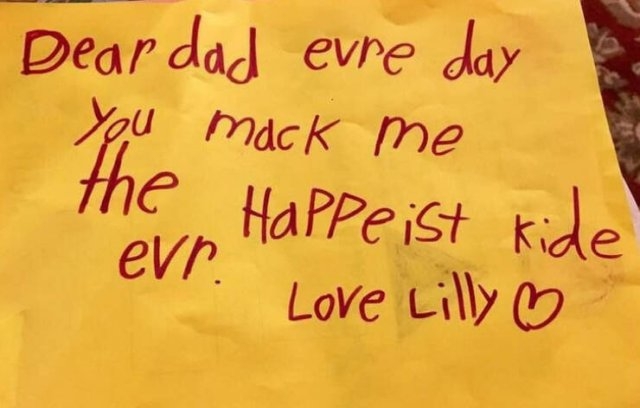 Dear dad evre day
you mack me
the Happeist kide
evr.
Love Lilly ♡